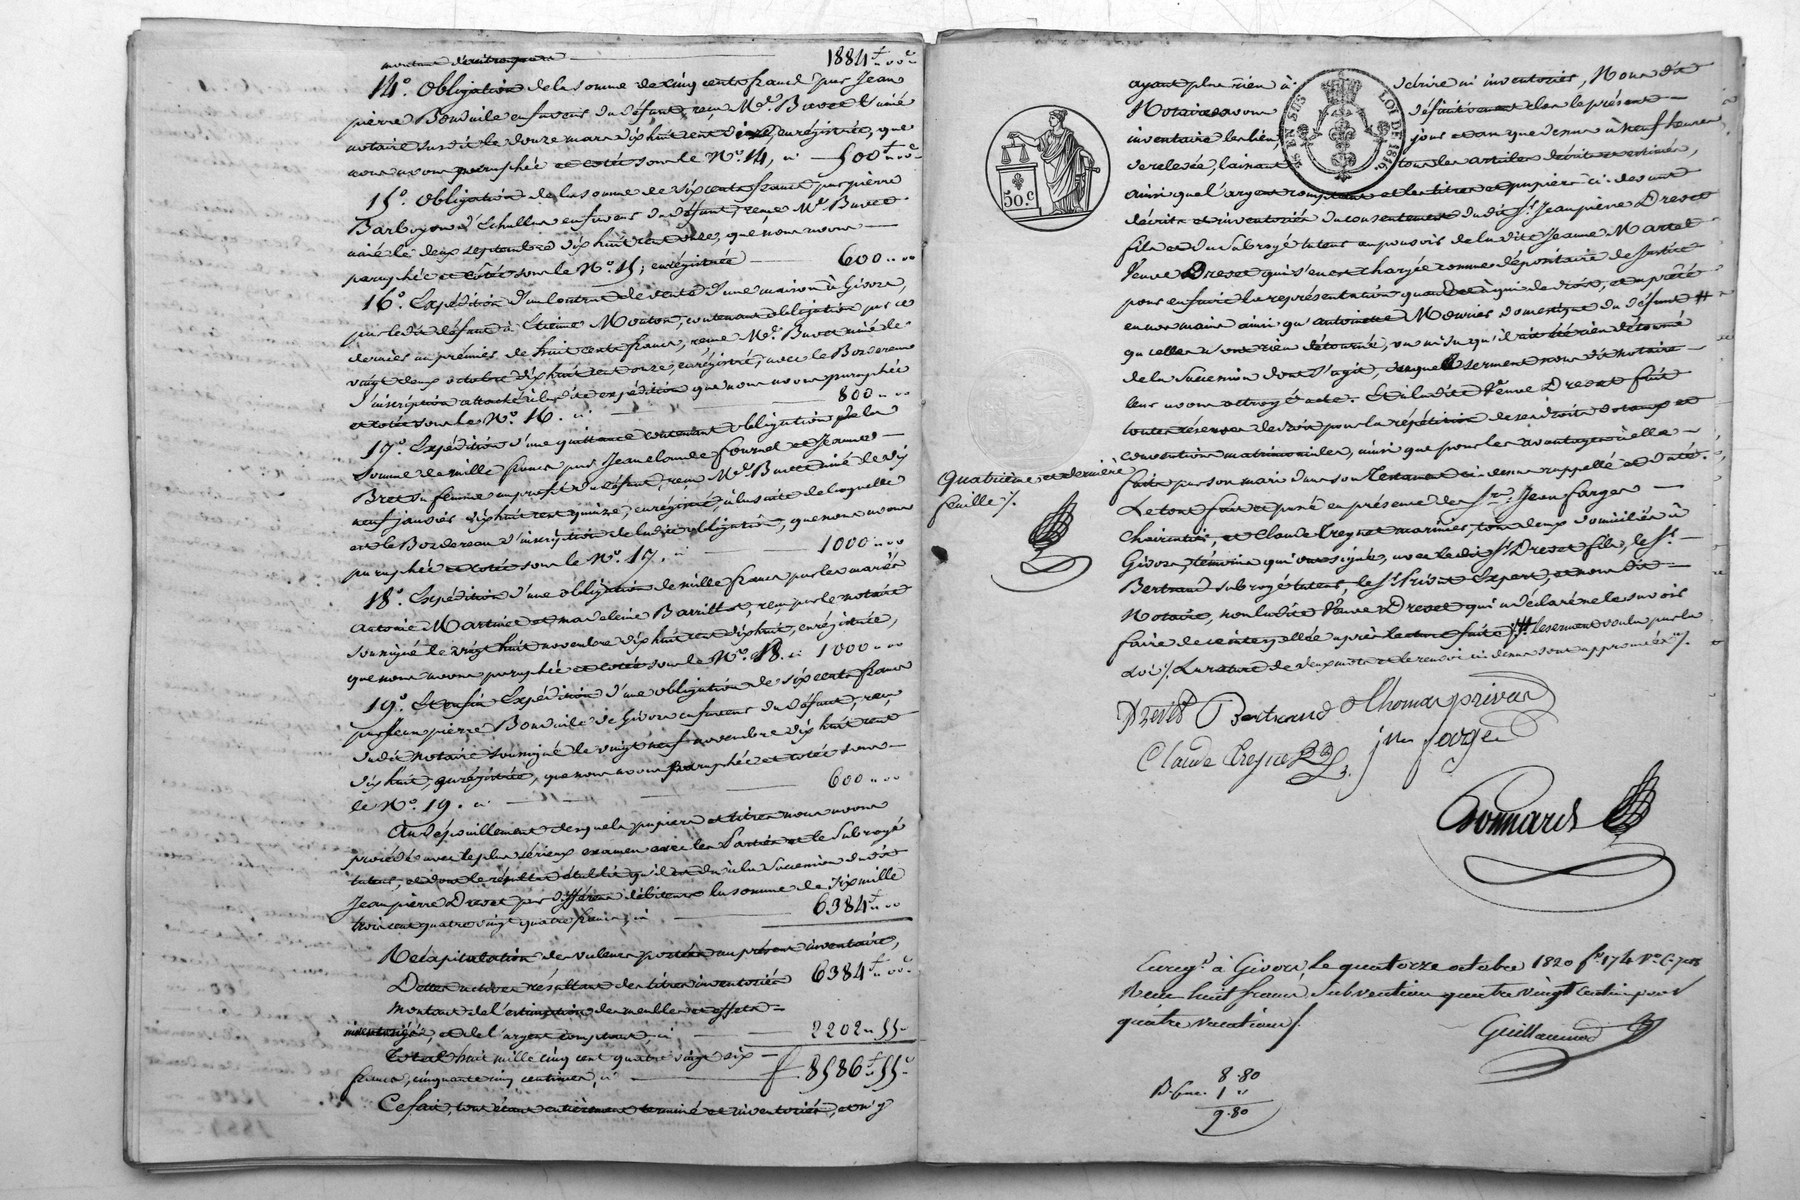 montant d'autre part 1884ᶠ.. 00ᶜ
14°. Obligation de la somme de cinq cents francs par Jean
pierre Bonduile en faveur du défunt, reçu Mᵉ. Buvet aîné
notaire susdit le douze mars dix huit cent onze, enrégistrée, que
nous avons paraphée et cotée sous le N°. 14, ci 500ᶠ.. 00ᶜ
15°. Obligation de la somme de six cents francs par pierre
d'Echallas en faveur du défunt, reçue Mᵉ. Buvet
ainé le deux septembre dix huit cent onze, que nous avons
paraphée et cotée sous le N°. 15, enrégistrée 600.. 00
16°. Expédition d'un contrat de vente d'une maison à Givors,
par le dit défunt à Etienne Mouton, contenant obligation par ce
dernier au premier de huit cents francs, reçue Mᵉ. Buvet ainé le
vingt deux octobre dix huit cent onze, enrégistré, avec le Bordereau
d'inscription attaché à la dite expédition que nous avons paraphée
et cotée sous le N°. 16. ci 800.. 00
17°. Expédition d'une quittance contenant obligation de la
somme de mille francs par Jean claude fournel et Jeanne
Bret sa femme au profit du défunt, reçu Mᵉ. Buvet ainé le dix
neuf janvier dix huit cent quinze, enrégistré, à la suite de laquelle
est le Bordereau d'inscription de la dite obligation, que nous avons
paraphée et cotée sous le N°. 17, ci 1000.. 00
18°. Expédition d'une obligation de mille francs par les mariés
Antoine Martinet et madeleine Barillot, reçu par le notaire
soussigné le vingt huit novembre dix huit cent dix huit, enrégistrée,
que nous avons paraphée et cotée sous le N°. 18. ci 1000.. 00
19°. Et enfin Expédition d'une obligation de six cents francs
par Jean pierre Bonduile de Givors en faveur du défunt, reçu
du dit notaire soussigné le vingt neuf novembre dix huit cent
dix huit, enrégistrée, que nous avons paraphée et cotée sous
le N°. 19. ci 600.. 00
Au dépouillement desquels papiers et titres nous avons
procédé avec le plus sérieux examen avec les Parties et le Subrogé
tuteur, et dont le résultat établit qu'il est du à la Succession du dit
Jean pierre Drevet par différens débiteurs la somme de six mille
trois cent quatre vingt quatre francs, ci 6384ᶠ.. 00
Récapitulation des valeurs portées au présent inventaire,
Dettes actives résultant des titres inventoriés 6384ᶠ.. 00ᶜ
Montant de l'estimation des meubles et effets
inventoriés, et de l'argent comptant, ci 2202.. 55
Total huit mille cinq cent quatre vingt six
francs, cinquante cinq centimes, ci 8586ᶠ.. 55ᶜ
Ce fait, tout étant entièrement terminé et inventorié, et n'y
ayant plus rien à décrire ni inventorier, Nous dit
Notaire avons définitivement clos le présent
inventaire les lieu, jour et an que dessus à neuf heures
de relevée, laissant tous les articles décrits et estimés,
ainsi que l'argent comptant et les titres et papiers ci-devant
décrits et inventoriés du consentement du dit Sʳ. Jean pierre Drevet
fils et du Subrogé tuteur au pouvoir de la dite Jeanne Martel
Veuve Drevet qui s'en est chargée comme dépositaire de Justice
pour en faire la représentation quand et à qui de droit, et a prêté
en nos mains ainsi qu'antoinette Mournier domestique du défunt #
qu'elles n'ont rien détourné, vu ni su qu'il ait été rien détourné
de la Succession dont s'agit, duquel serment nous dit notaire
leur avons octroyé acte. Et la dite Vᵉ. Drevet fait
toutes réserves de droit pour la répétition de ses droits dotaux et
conventions matrimoniales, ainsi que pour les avantages à elle
faits par son mari dans son Testament ci-dessus rappellé et daté.
Le tout fait et passé en présence des Sʳˢ. Jean farges
et Claude Creynet marinier, tous deux domiciliés à
Givors, témoins qui ont signé, avec le dit Sʳ. Drevet fils, le Sʳ.
Bertrand subrogé tuteur, le Sʳ. Privat Expert, et nous dit
Notaire, non la dite Veuve Drevet qui a déclaré ne le savoir
faire de ce interpellée après lecture faite # le serment voulu par la
Loi. La rature de deux mots et le renvoi ci-dessus sont approuvés.
Quatrième et dernière
feuille
EN SUS
LOI DE 1816
50.ᶜ
Drevet Bertrand Thomas privat
Claude Creynet jean farge
Bonnard
Enregᵉ. à Givors, le quatorze octobre 1820 f° 174 V° C. 7 et 8
Reçu huit francs Subvention quatre vingt centimes pour
quatre vacations.
Guillaumod
8.80
1 ..
9.80